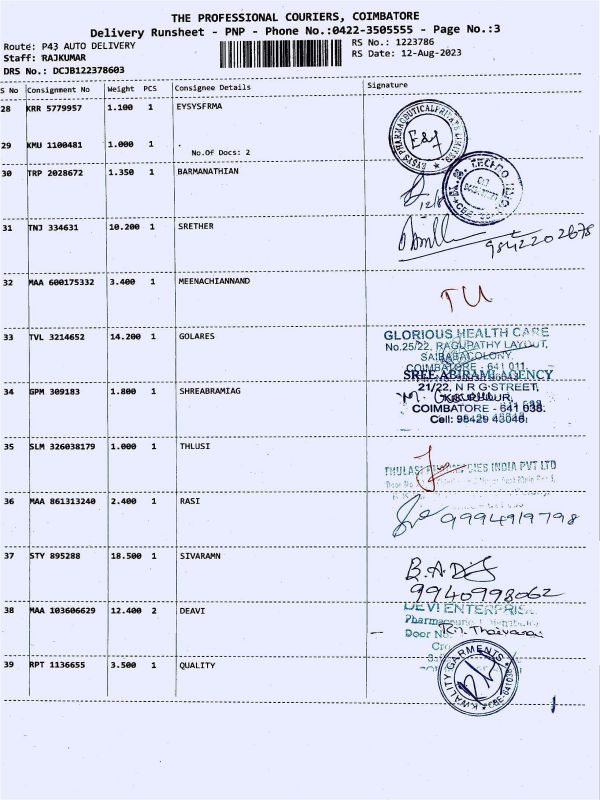 THE PROFESSIONAL COURIERS, COIMBATORE
Delivery Runsheet - PNP - Phone No.:0422-3505555 - Page No.:3
Route: P43 AUTO DELIVERY
RS No.: 1223786
Staff: RAJKUMAR
RS Date: 12-Aug-2023
DRS No.: DCJB122378603
S No Consignment No Weight PCS Consignee Details Signature
28 KRR 5779957 1.100 1 EYSYSFRMA
29 KMU 1100481 1.000 1 .
No.Of Docs: 2
30 TRP 2028672 1.350 1 BARMANATHIAN
12/8
31 TNJ 334631 10.200 1 SRETHER
9842202678
32 MAA 600175332 3.400 1 MEENACHIANNAND
TU
33 TVL 3214652 14.200 1 GOLARES
GLORIOUS HEALTH CARE
No.25/22, RAGUPATHY LAYOUT,
SAIBABACOLONY,
COIMBATORE - 641 011.
34 GPM 309183 1.800 1 SHREABRAMIAG
SREE ABIRAMI AGENCY
21/22, N R G STREET,
COIMBATORE - 641 038.
Cell: 98429 43046
35 SLM 326038179 1.000 1 THLUSI
THULASI PHARMACIES INDIA PVT LTD
36 MAA 861313240 2.400 1 RASI
9994919798
37 STY 895288 18.500 1 SIVARAMN
9940998062
38 MAA 103606629 12.400 2 DEAVI
DEVI ENTERPRISE
Door No
39 RPT 1136655 3.500 1 QUALITY
KWALITY GARMENTS